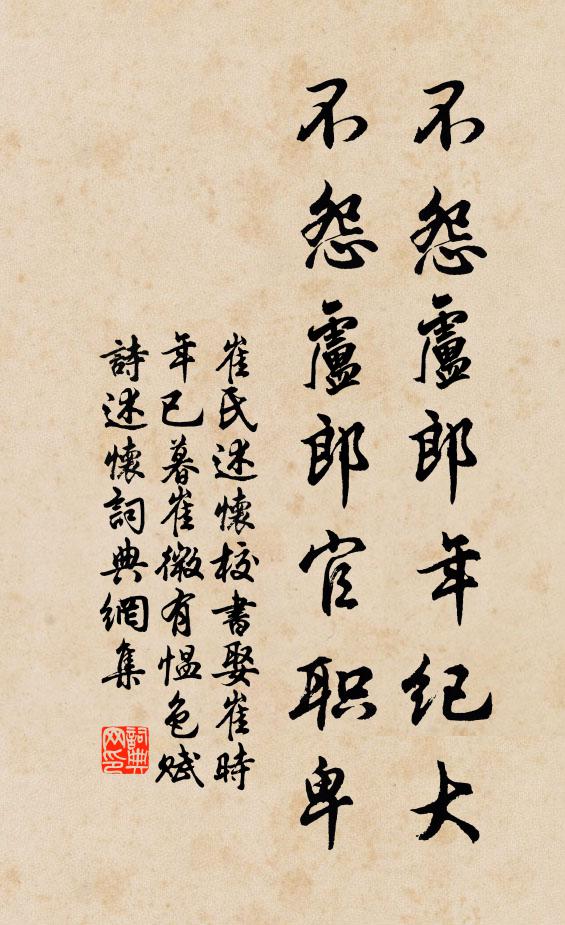 不怨盧郎年纪大
不怨盧郎官职卑
崔氏述懷校書娶崔時
年已暮崔微有愠色赋
詩述懷詞典網集
詞典
网印